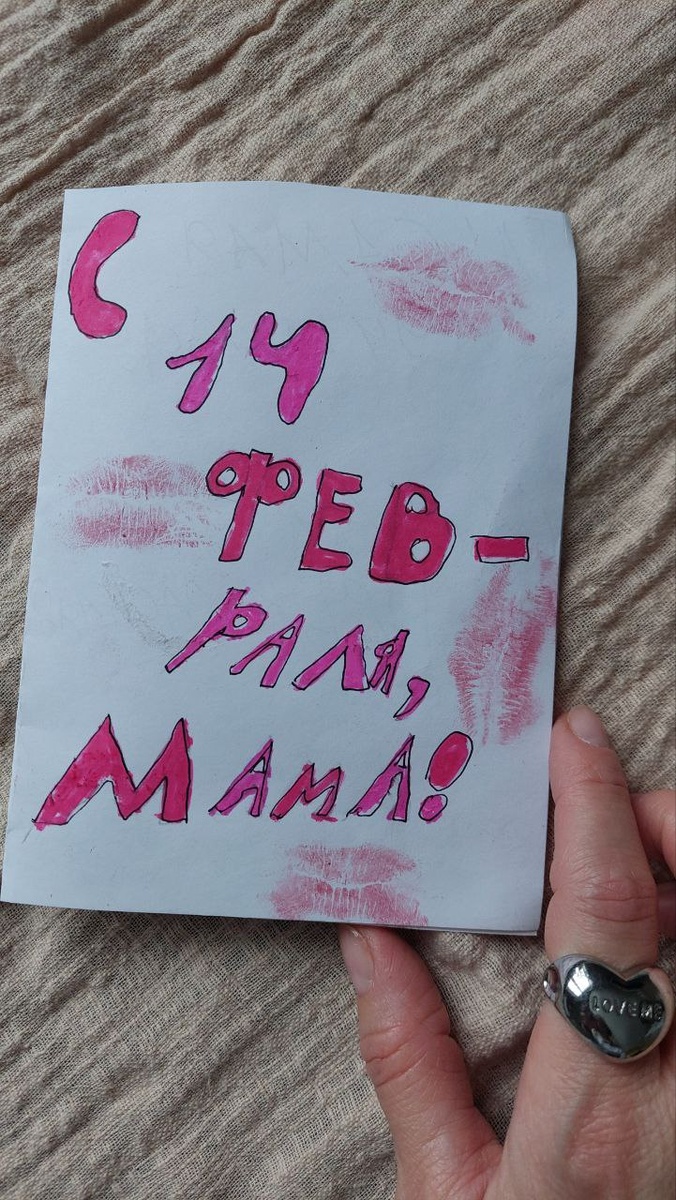 С
14
ФЕВ-
РАЛЯ,
МАМА!
LOVE ME